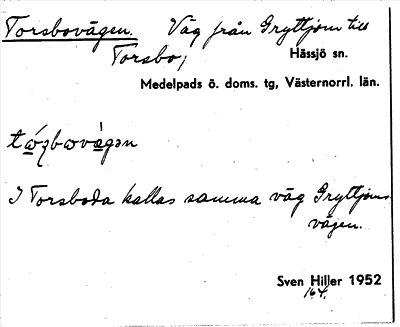 Torsbovägen. Väg från Gryttjom till
Torsbo;
Hässjö sn.
Medelpads ö. doms. tg, Västernorrl. län.
I Torsboda kallas samma väg Gryttjoms-
vägen.
Sven Hiller 1952
164.